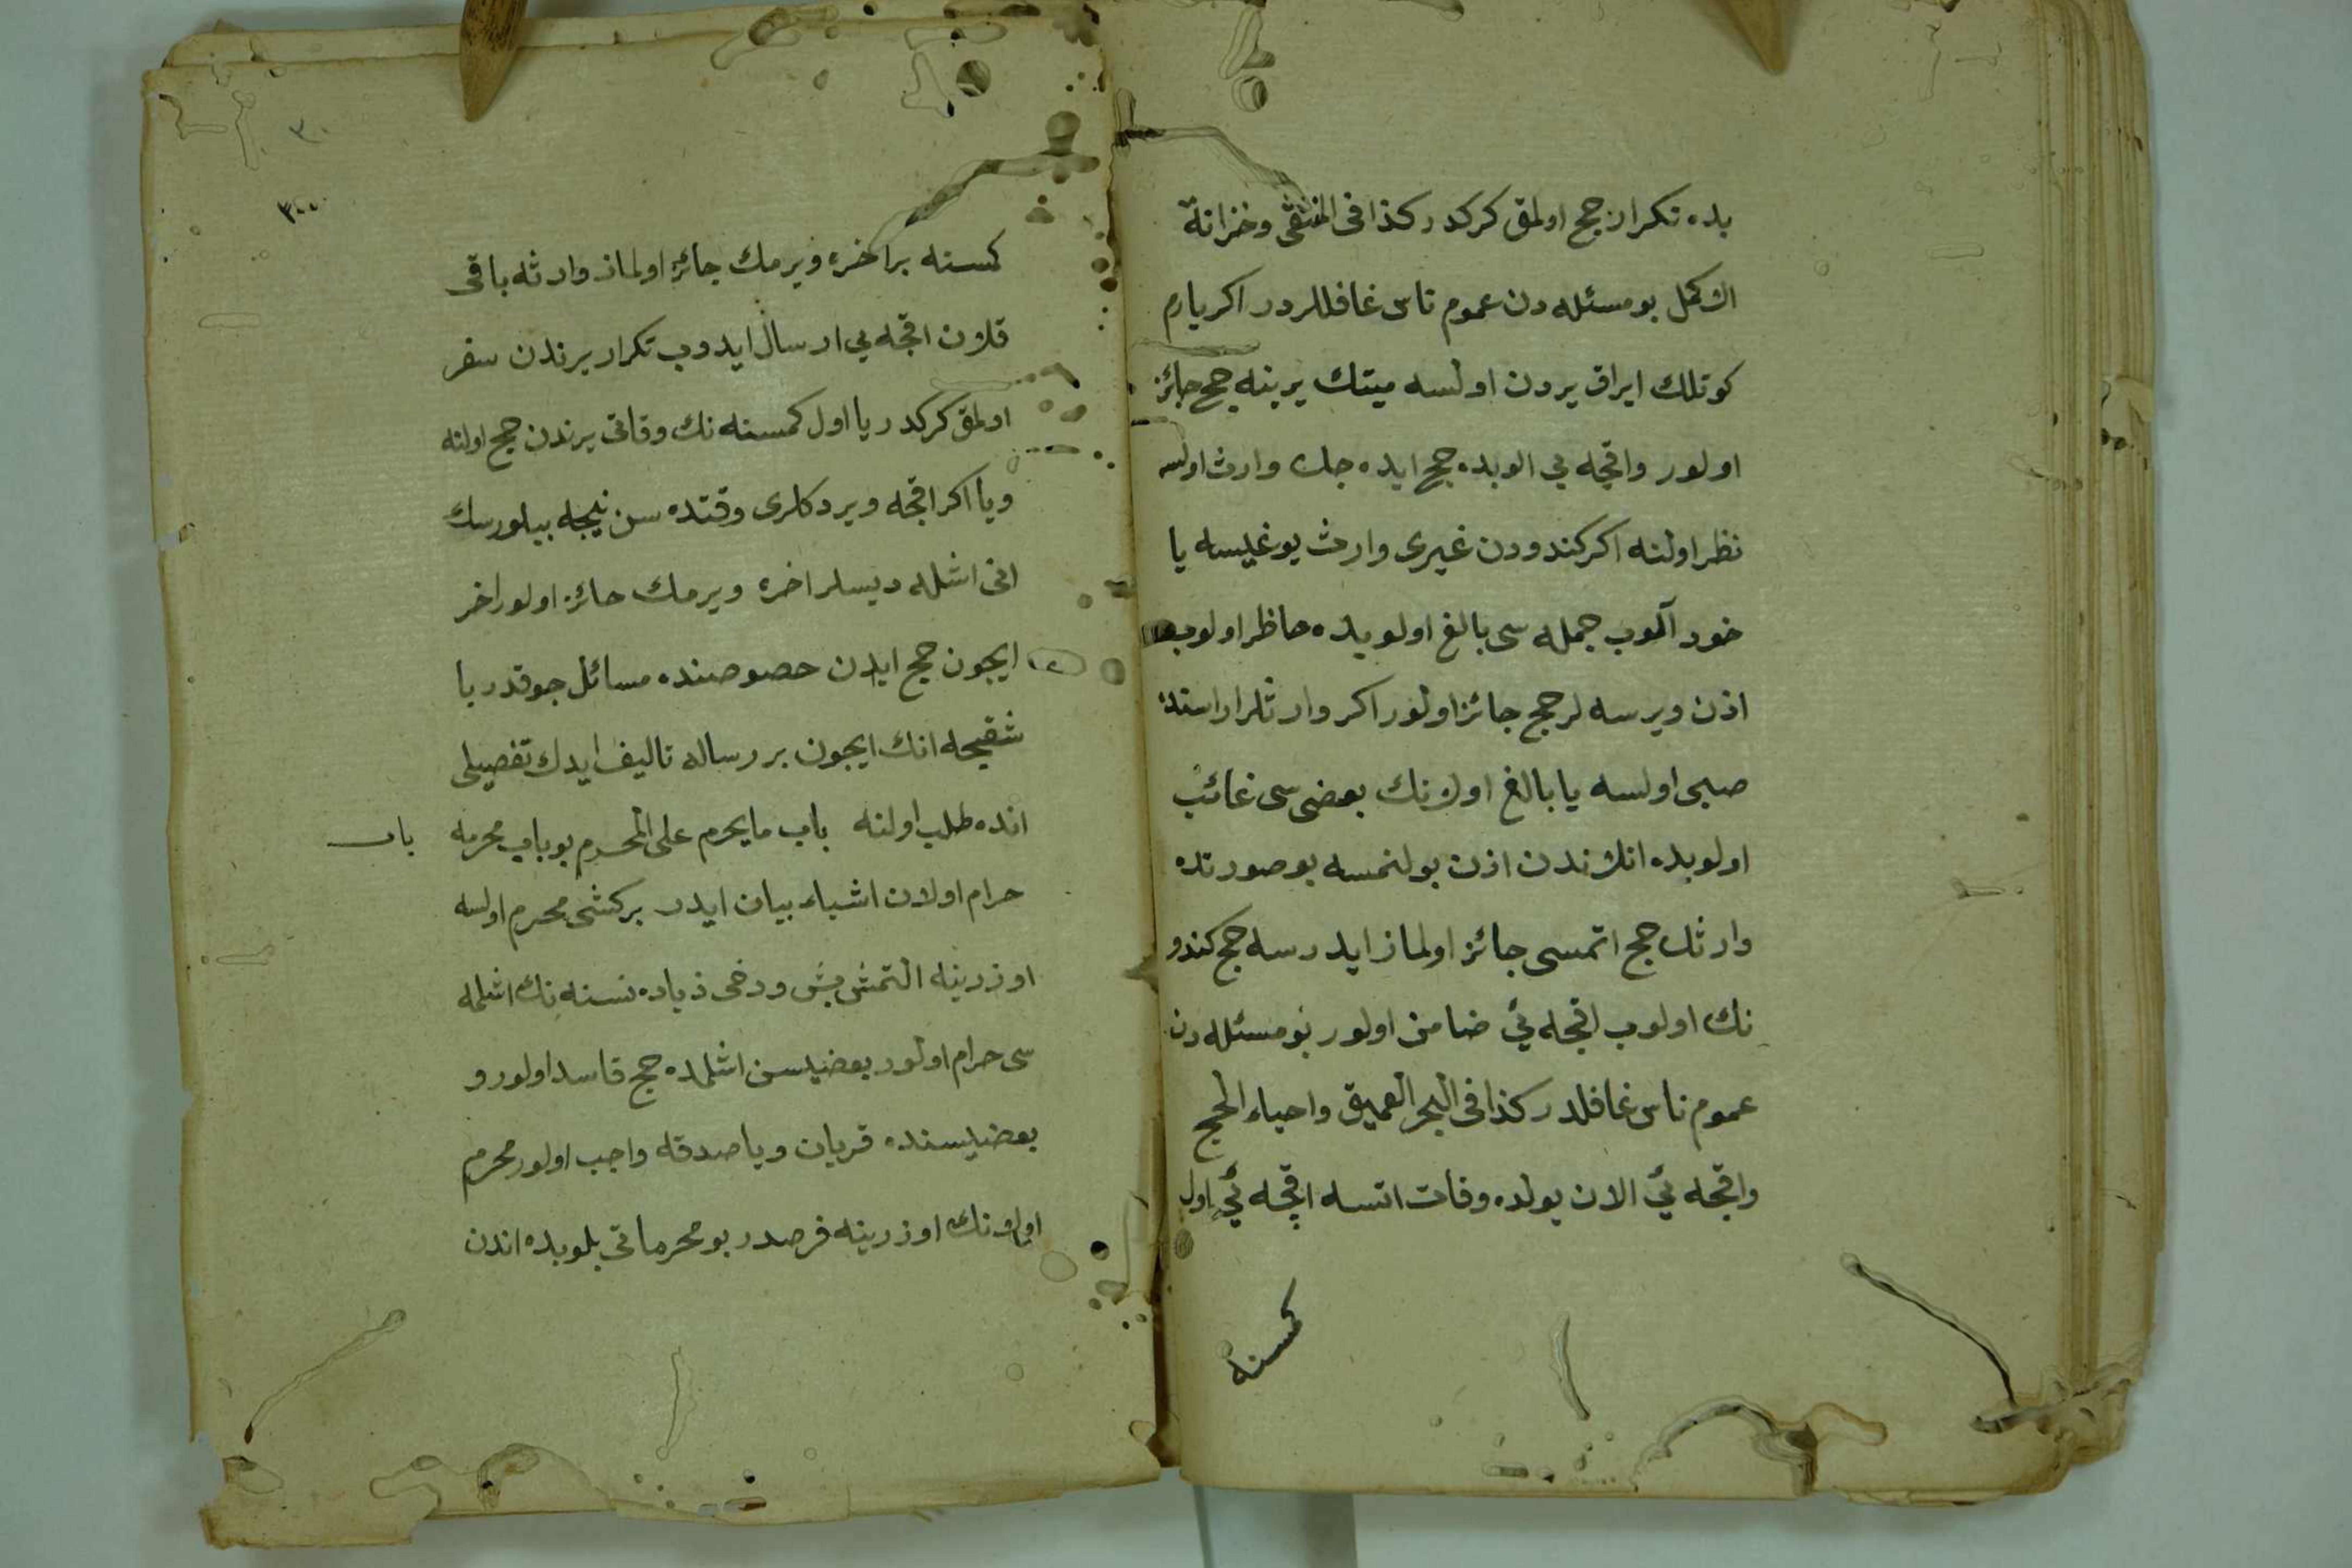 بده تكرار حج اولمق كركدر كذا فى المنتقى وخزانة
الاكمل بو مسئله دن عموم ناس غافللردر اكر يارم
كوتلك ايراق يردن اولسه ميتك يرينه حج جائز
اولور واقچه يى الوبده حج ايده جك وارث اولسه
نظر اولنه اكر كندودن غيرى وارث يوغيسه يا
خود آلوب جمله سى بالغ اولوبده حاظر اولوب
اذن ويرسه لر حج جائز اولور اكر وارثلر اراسنده
صبى اولسه يا بالغ اولانك بعضى سى غائب
اولوبده انك ندن اذن بولنمسه بو صورتده
وارثك حج اتمسى جائز اولماز ايدرسه حج كندو
نك اولوب اقچه ئي ضامن اولور بو مسئله دن
عموم ناس غافلدر كذا فى البحر العميق واحياء الحج
واقچه ئي الان يولده وفات اتسه اقچه ئي اول
كمسنه
٣٠
كمسنه بر اخره ويرمك جائز اولماز وارثه باقى
قلان اقچه يى ارسال ايدوب تكرار يرندن سفر
اولمق كركدر يا اول كمسنه نك وفاتى يرندن حج اولنه
ويا اكر اقچه ويردكلرى وقتده سن نيجه بيلورسك
انى اشله ديسلر اخره ويرمك جائز اولور اخر
ايچون حج ايدن حصوصنده مسائل چوقدر با
شقيجه انك ايچون بر رساله تاليف ايدك تفصيلى
انده طلب اولنه باب ما يحرم على المحرم بو باب محرمه
باب
حرام اولان اشياء بيان ايدر بر كشى محرم اولسه
اوزرينه التمش بش ودخى زياده نسنه نك اشلمه
سى حرام اولور بعضيسن اشلمده حج فاسد اولور و
بعضيسنده قربان ويا صدقه واجب اولور محرم
اولانك اوزرينه فرصدر بو محرماتى بلوبده اندن